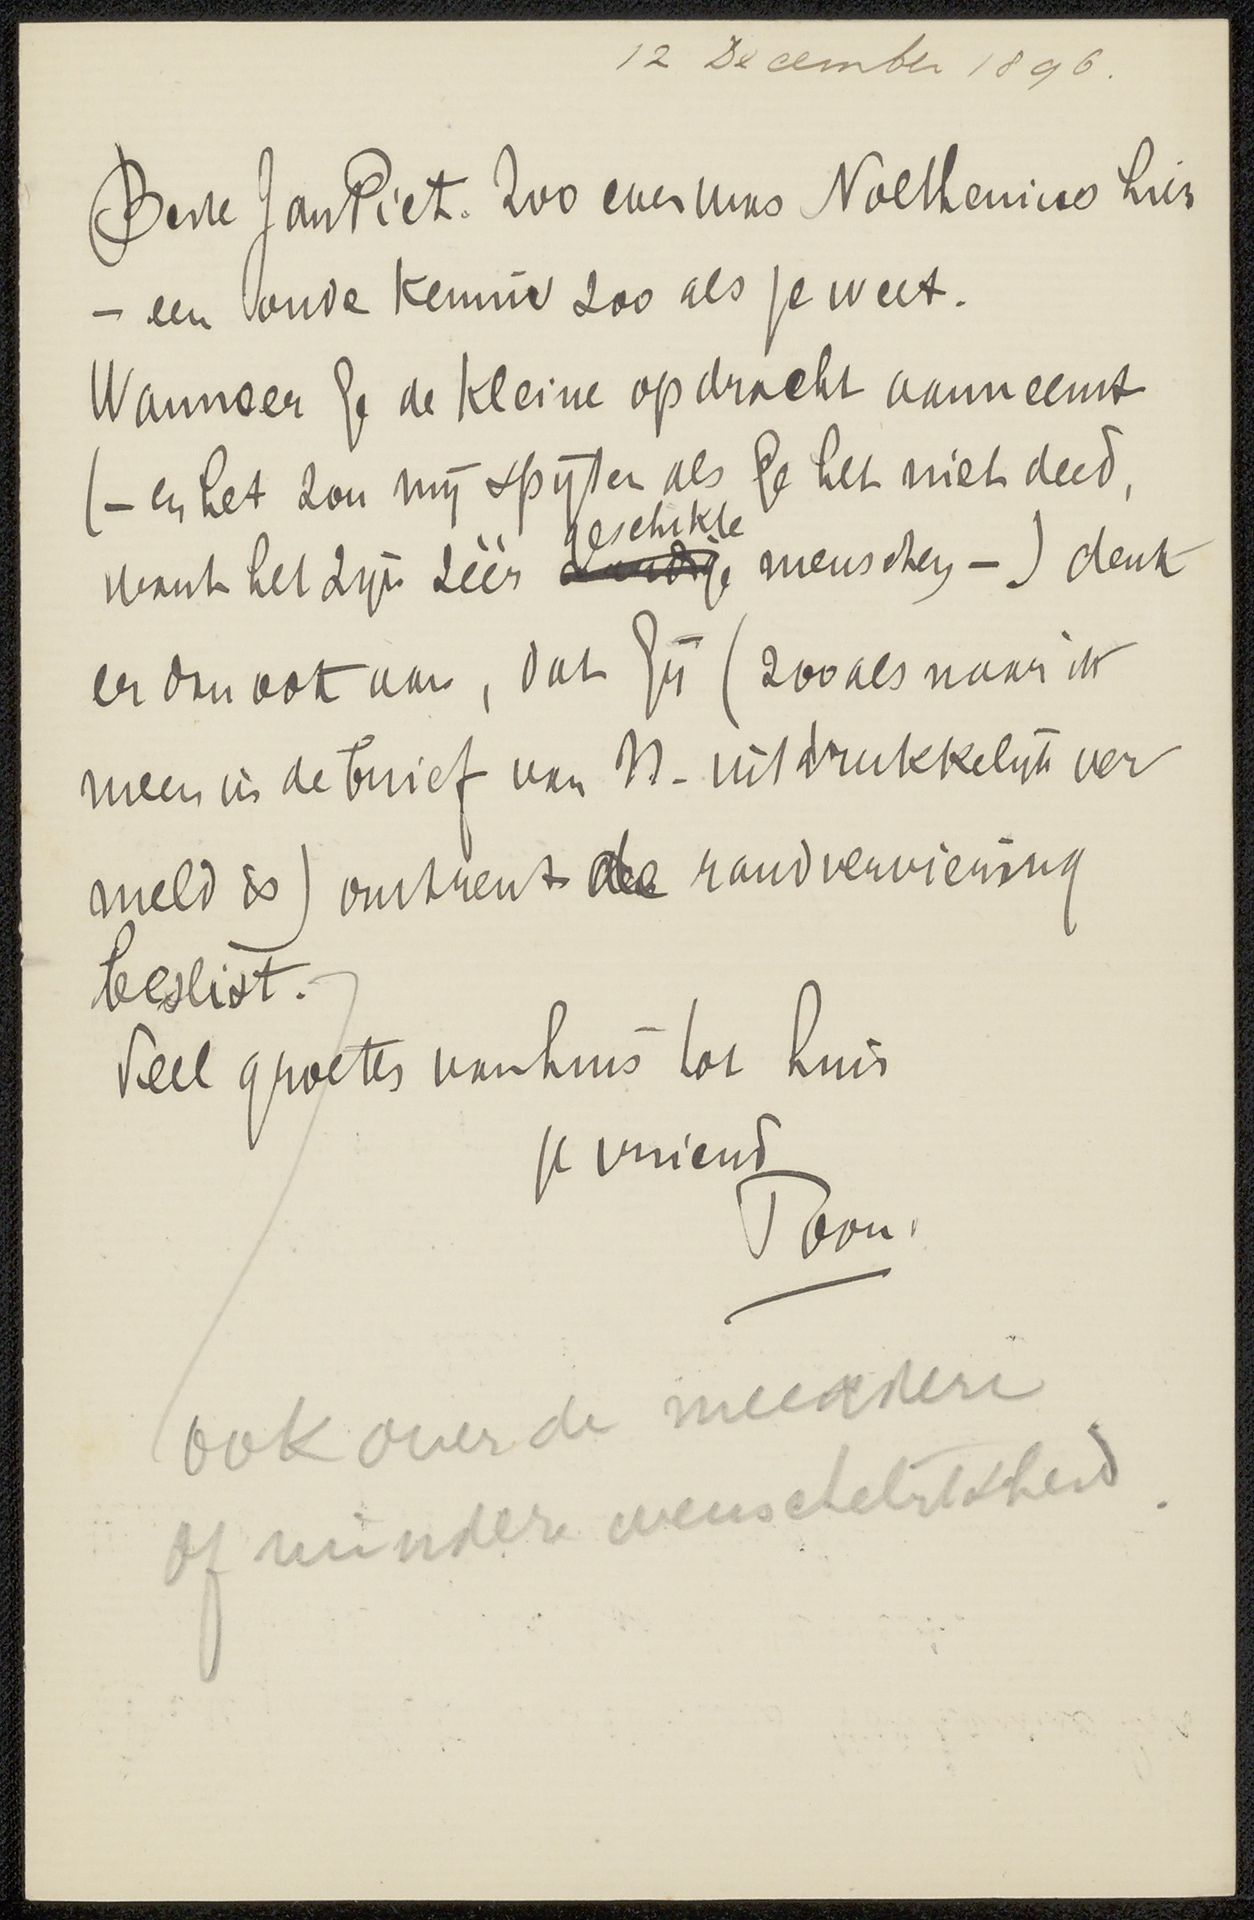 12 December 1896.
Beste Jan Piet. Zoo even was Nolthenius hier
- een oude kennis zoo als je weet.
Wanneer ge de kleine opdracht aanneemt
(- en het zou mij spijten als ge het niet deed,
geschikte
want het zijn zéér aardige menschen -) denk
er dan ook aan, dat gij (zooals naar ik
meen in de brief van N. uitdrukkelijk ver
meld is) omtrent de randversiering
beslist.
Veel groeten van huis tot huis
je vriend
Toon.
ook over de meerdere
of mindere wenschelijkheid.